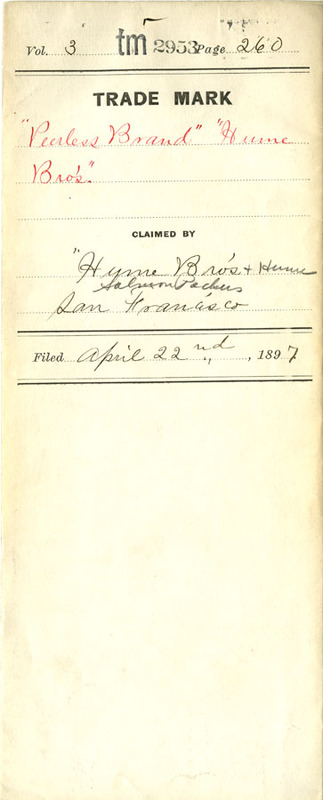 Vol. 3 tm 2953 Page 260
TRADE MARK
"Peerless Brand" "Hume
Bro's".
CLAIMED BY
"Hume Bro's + Hume
Salmon Packers
San Francisco
Filed April 22nd, 1897